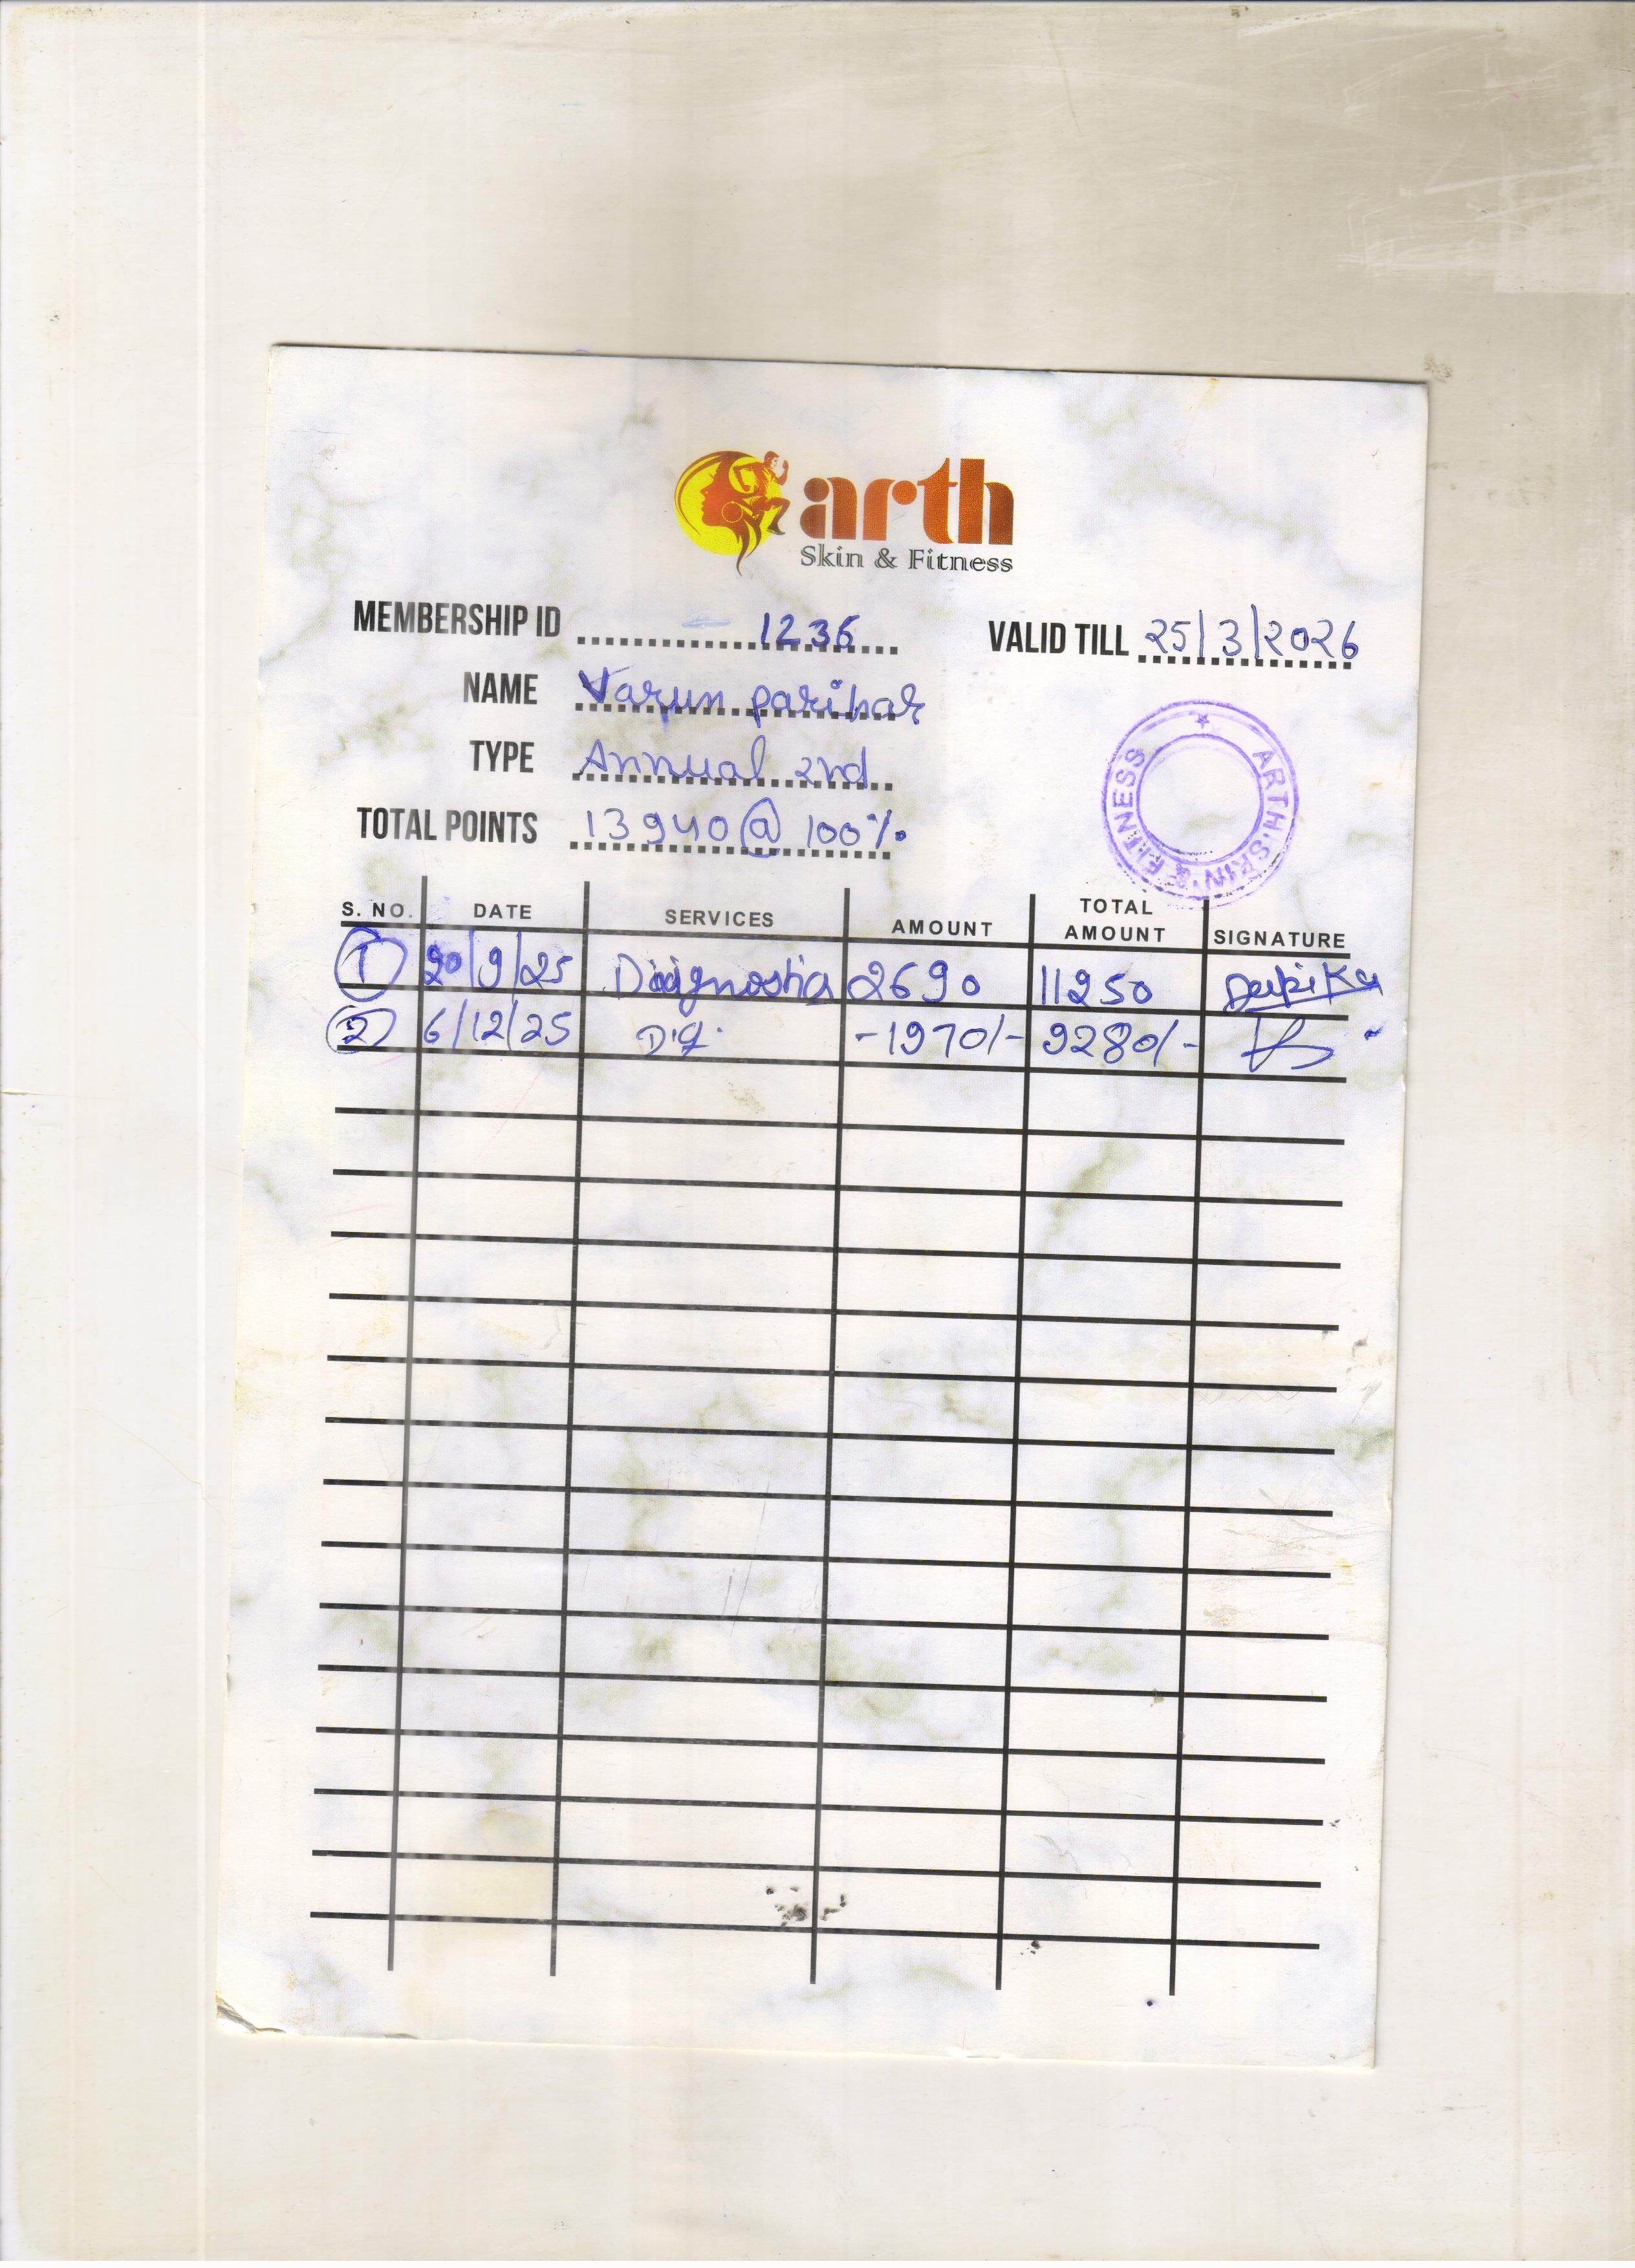 arth
Skin & Fitness
MEMBERSHIP ID 1236 VALID TILL 25/3/2026
NAME Varun parihar
TYPE Annual 2nd
TOTAL POINTS 13940 @ 100%
ARTH SKIN & FITNESS
S. NO. DATE SERVICES AMOUNT TOTAL AMOUNT SIGNATURE
1 20/9/25 Diagnostic 2690 11250 Deepika
2 6/12/25 Dig. -1970/- 9280/-